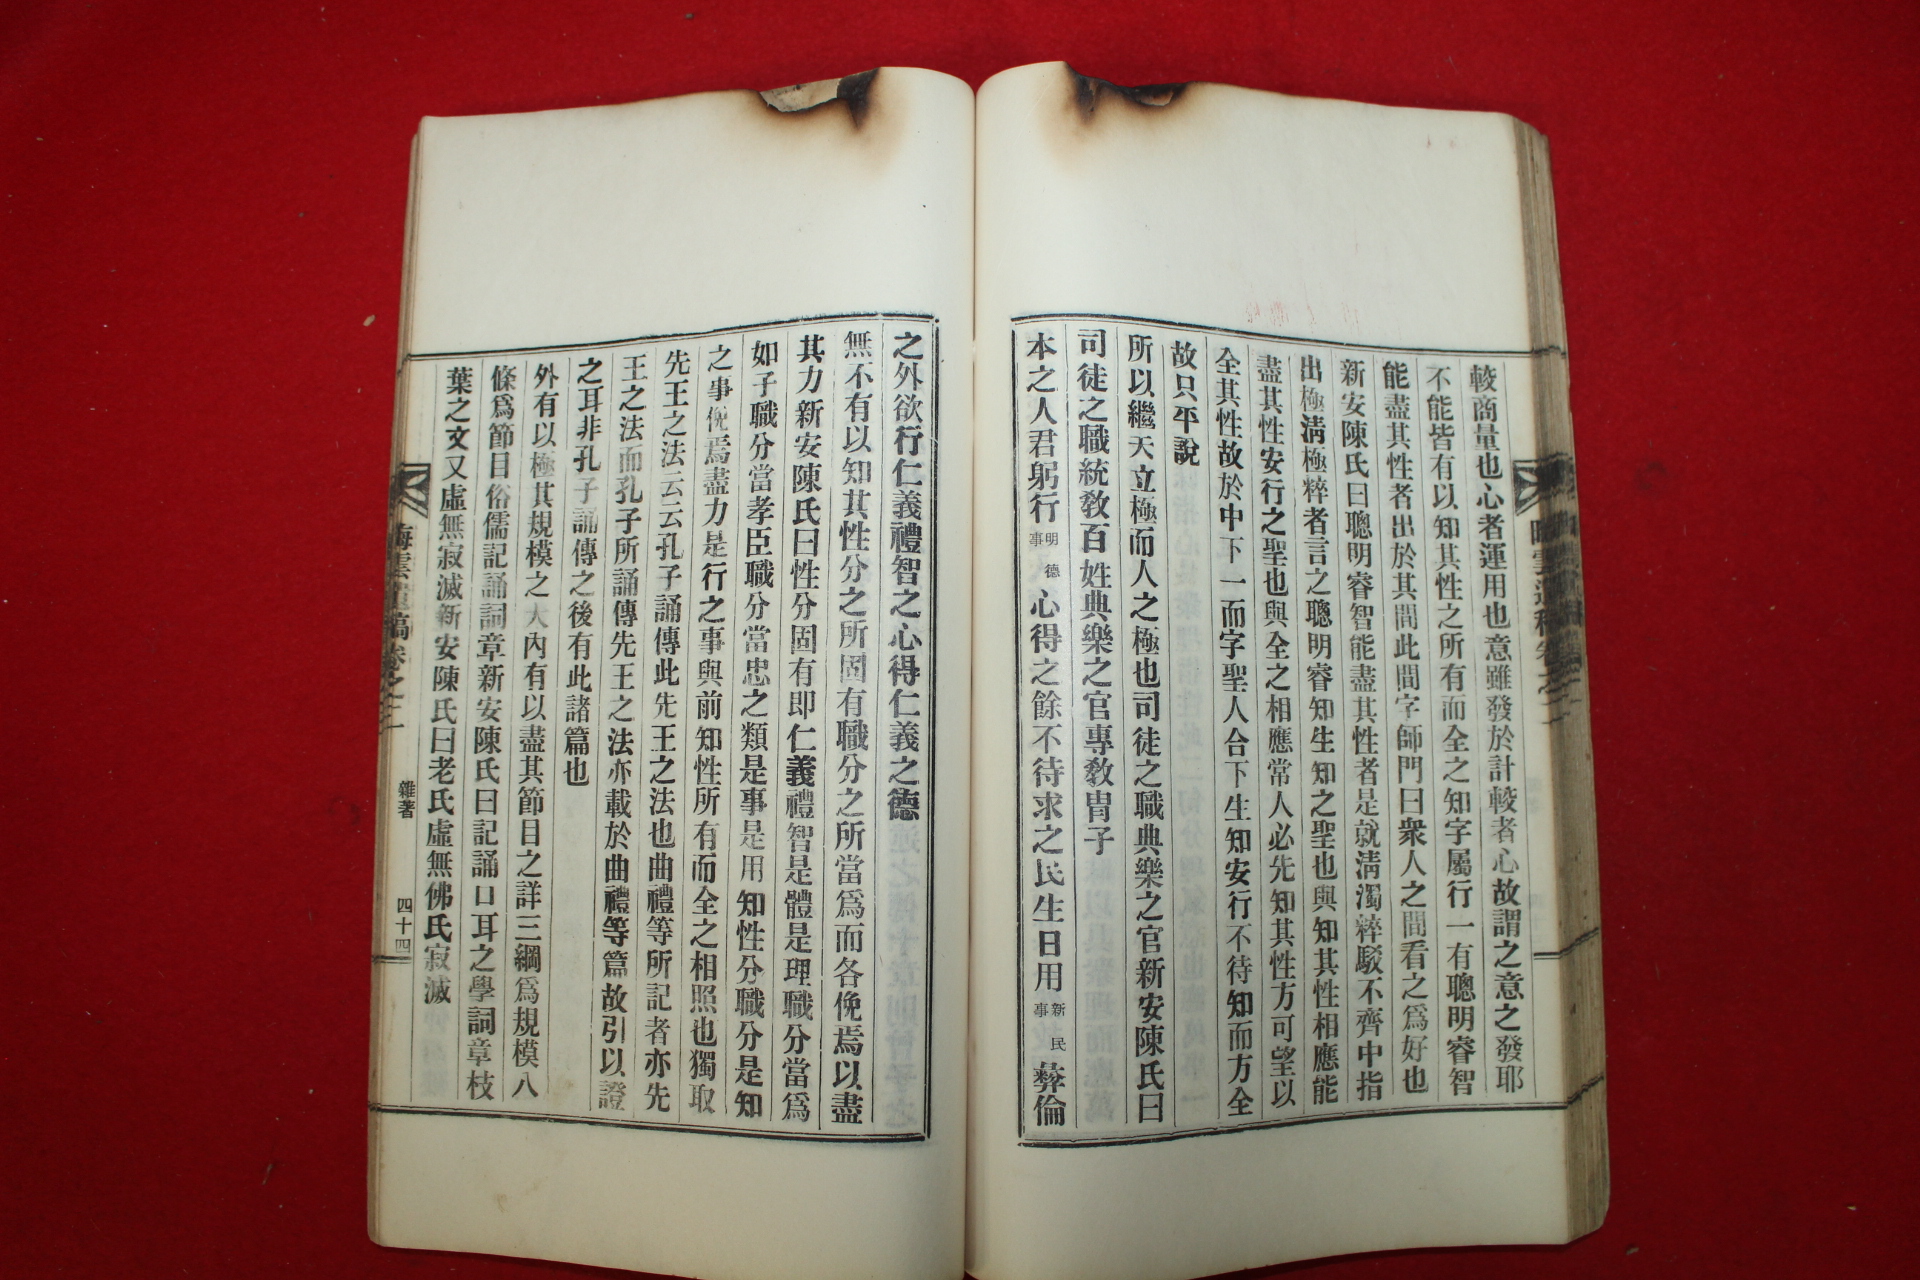 較商量也心者運用也意雖發於計較者心故謂之意之發耶
不能皆有以知其性之所有而全之知字屬行一有聰明睿智
能盡其性者出於其間此間字師門曰衆人之間看之爲好也
新安陳氏曰聰明睿智能盡其性者是就淸濁粹駁不齊中指
出極淸極粹者言之聰明睿知生知之聖也與知其性相應能
盡其性安行之聖也與全之相應常人必先知其性方可望以
全其性故於中下一而字聖人合下生知安行不待知而方全
故只平說
所以繼天立極而人之極也司徒之職典樂之官新安陳氏曰
司徒之職統敎百姓典樂之官專敎胄子
本之人君躬行明德事心得之餘不待求之民生日用新民事彝倫
之外欲行仁義禮智之心得仁義之德
無不有以知其性分之所固有職分之所當爲而各俛焉以盡
其力新安陳氏曰性分固有即仁義禮智是體是理職分當爲
如子職分當孝臣職分當忠之類是事是用知性分職分是知
之事俛焉盡力是行之事與前知性所有而全之相照也獨取
先王之法云云孔子誦傳此先王之法也曲禮等所記者亦先
王之法而孔子所誦傳先王之法亦載於曲禮等篇故引以證
之耳非孔子誦傳之後有此諸篇也
外有以極其規模之大內有以盡其節目之詳三綱爲規模八
條爲節目俗儒記誦詞章新安陳氏曰記誦口耳之學詞章枝
葉之文又虛無寂滅新安陳氏曰老氏虛無佛氏寂滅
雲遺稿卷之二 雜著 四十四